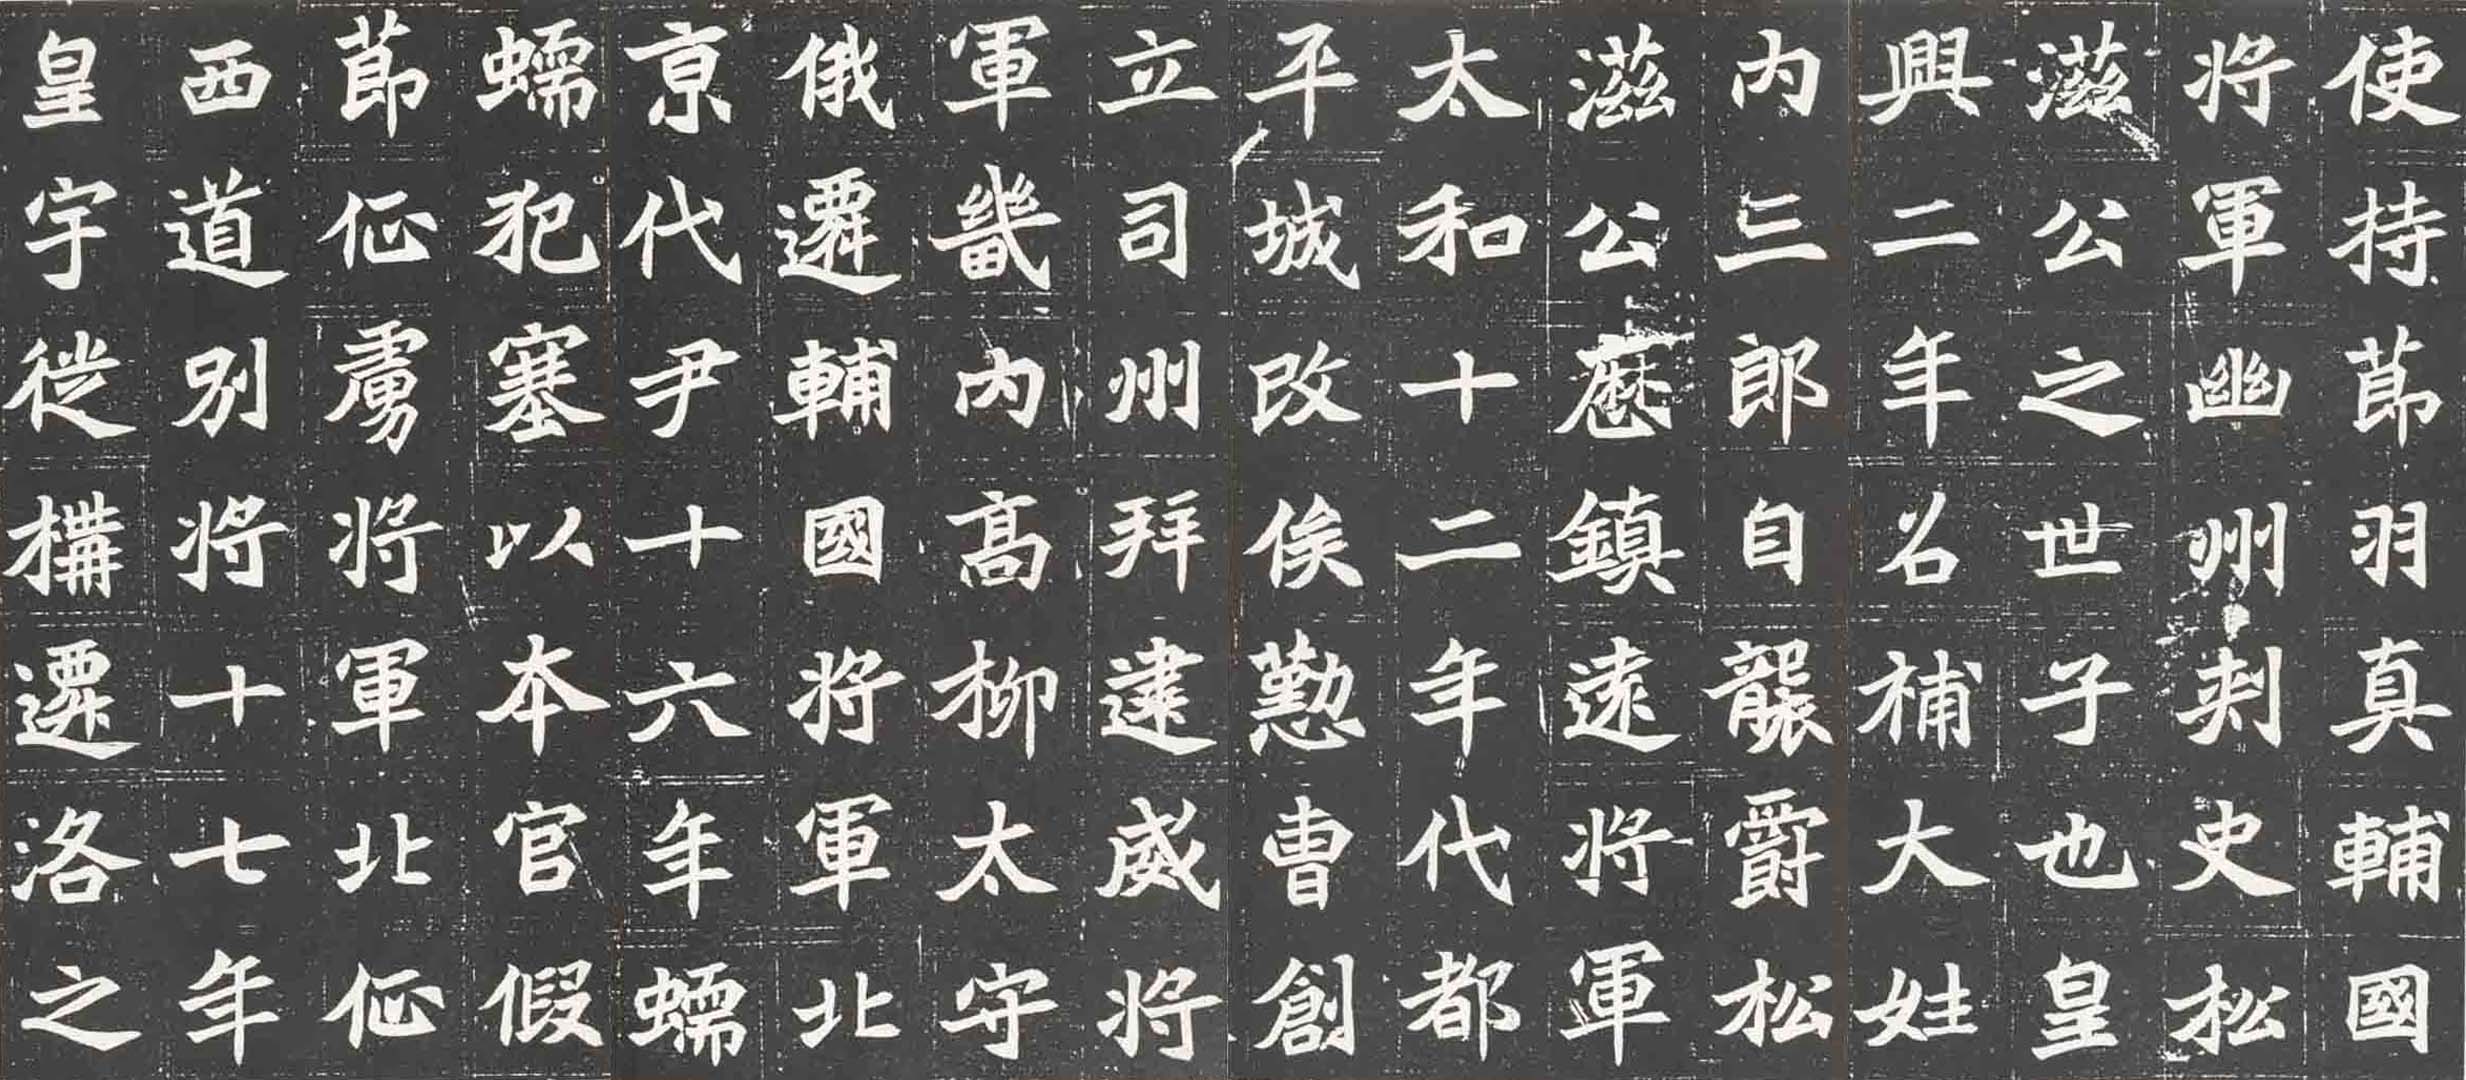 使持莭羽真輔國
將軍幽州刾史松
滋公之世子也皇
興二年召補大姓
内三郎自襲爵松
滋公歷鎮遠將軍
太和十二年代都
平城改俟懃曹創
立司州拜建威將
軍畿内髙柳太守
俄遷輔國將軍北
亰代尹十六年蠕
蠕犯塞以本官假
莭征虜將軍北征
西道別將十七年
皇宇徙構遷洛之